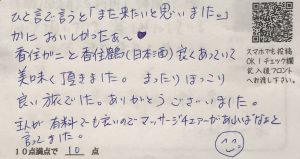 ひと言で言うと「また来たいと思いました。」
かにおいしかったぁ〜♥
香住がにと香住鶴(日本酒)良くあっていて
美味く頂きました。まったりほっこり
良い旅でした。ありがとうございました。
主人が有料でも良いのでマッサージチェアーがあればなぁと
言ってました。
10点満点で 10 点
スマホでも投稿
OK！チェック欄
記入後フロント
へお渡し下さい。